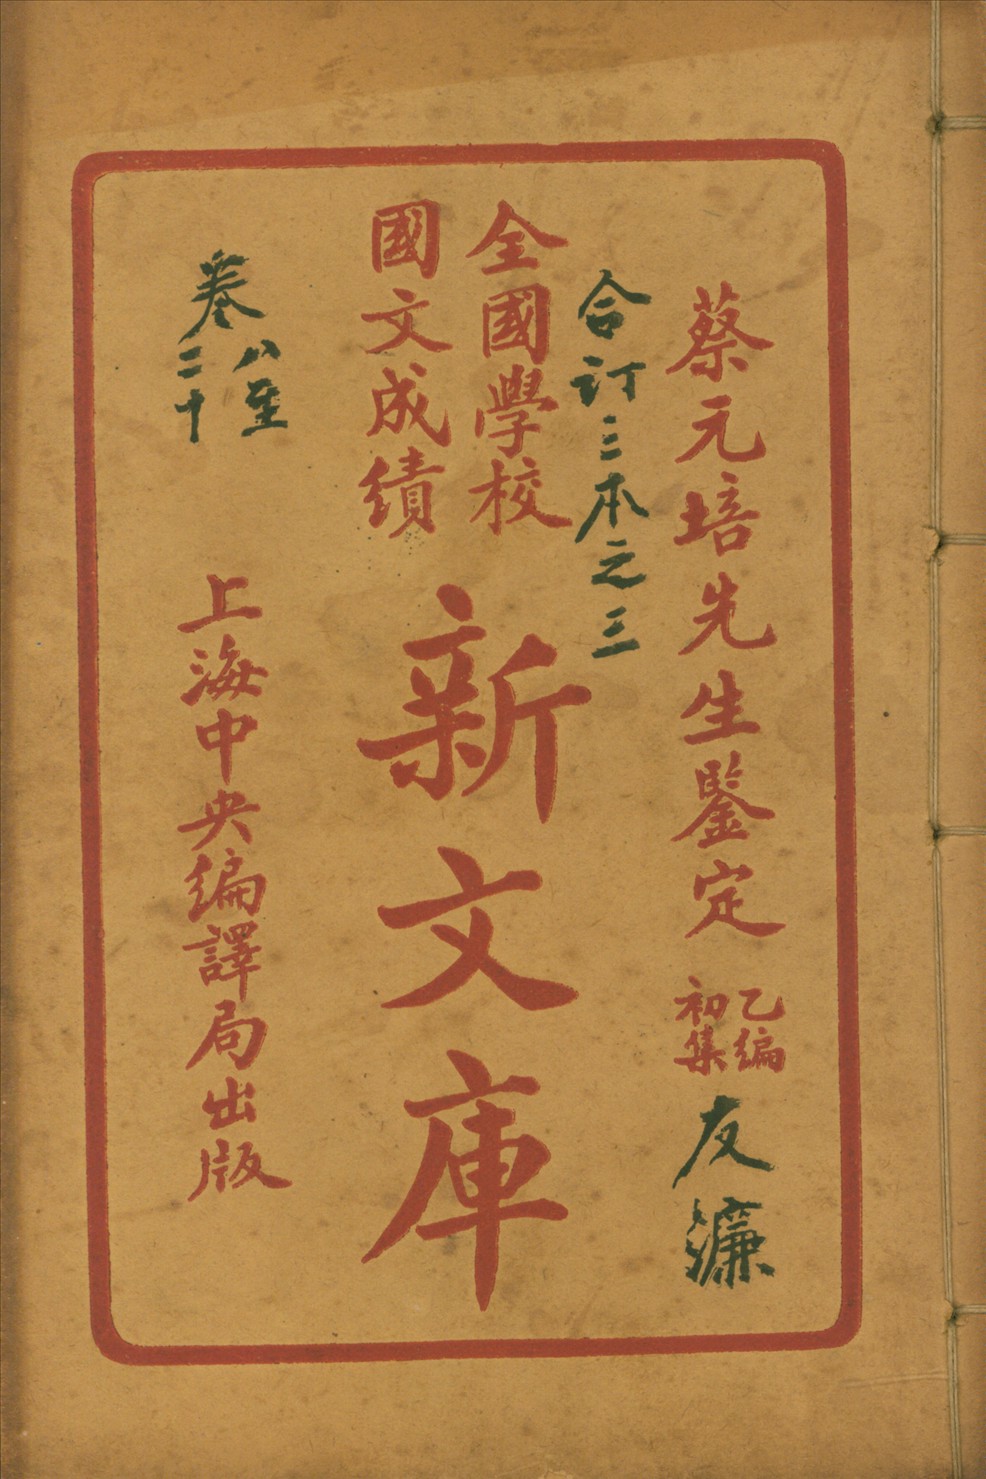 蔡元培先生鑒定
乙編
初集
友濂
合訂三本之三
全國學校
國文成績
新文庫
卷八至
二十
上海中央編譯局出版